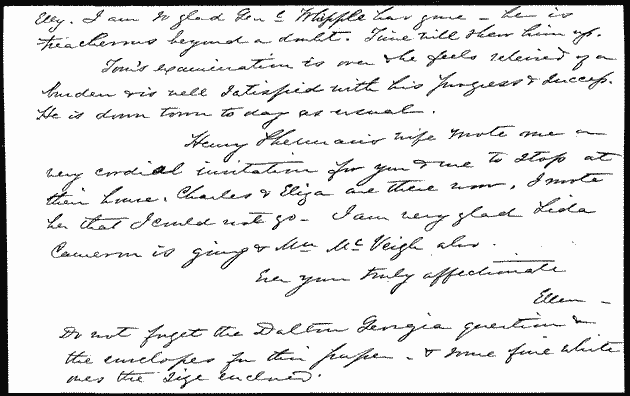 Elly. I am so glad Genl Whipple has gone - he is
treacherous beyond a doubt. Time will show him up.
Tom's examination is over & he feels relieved of a
burden & is well satisfied with his progress & success.
He is down town to day as usual.
Henry Sherman's wife wrote me a
very cordial invitation for you & me to stop at
their house. Charles & Eliza are there now. I wrote
her that I could not go - I am very glad Lida
Cameron is going & Mrs McVeigh also.
Ever your truly affectionate
Ellen -
Do not forget the Dalton Georgia question &
the envelopes for thin paper - & some fine white
ones the size enclosed.